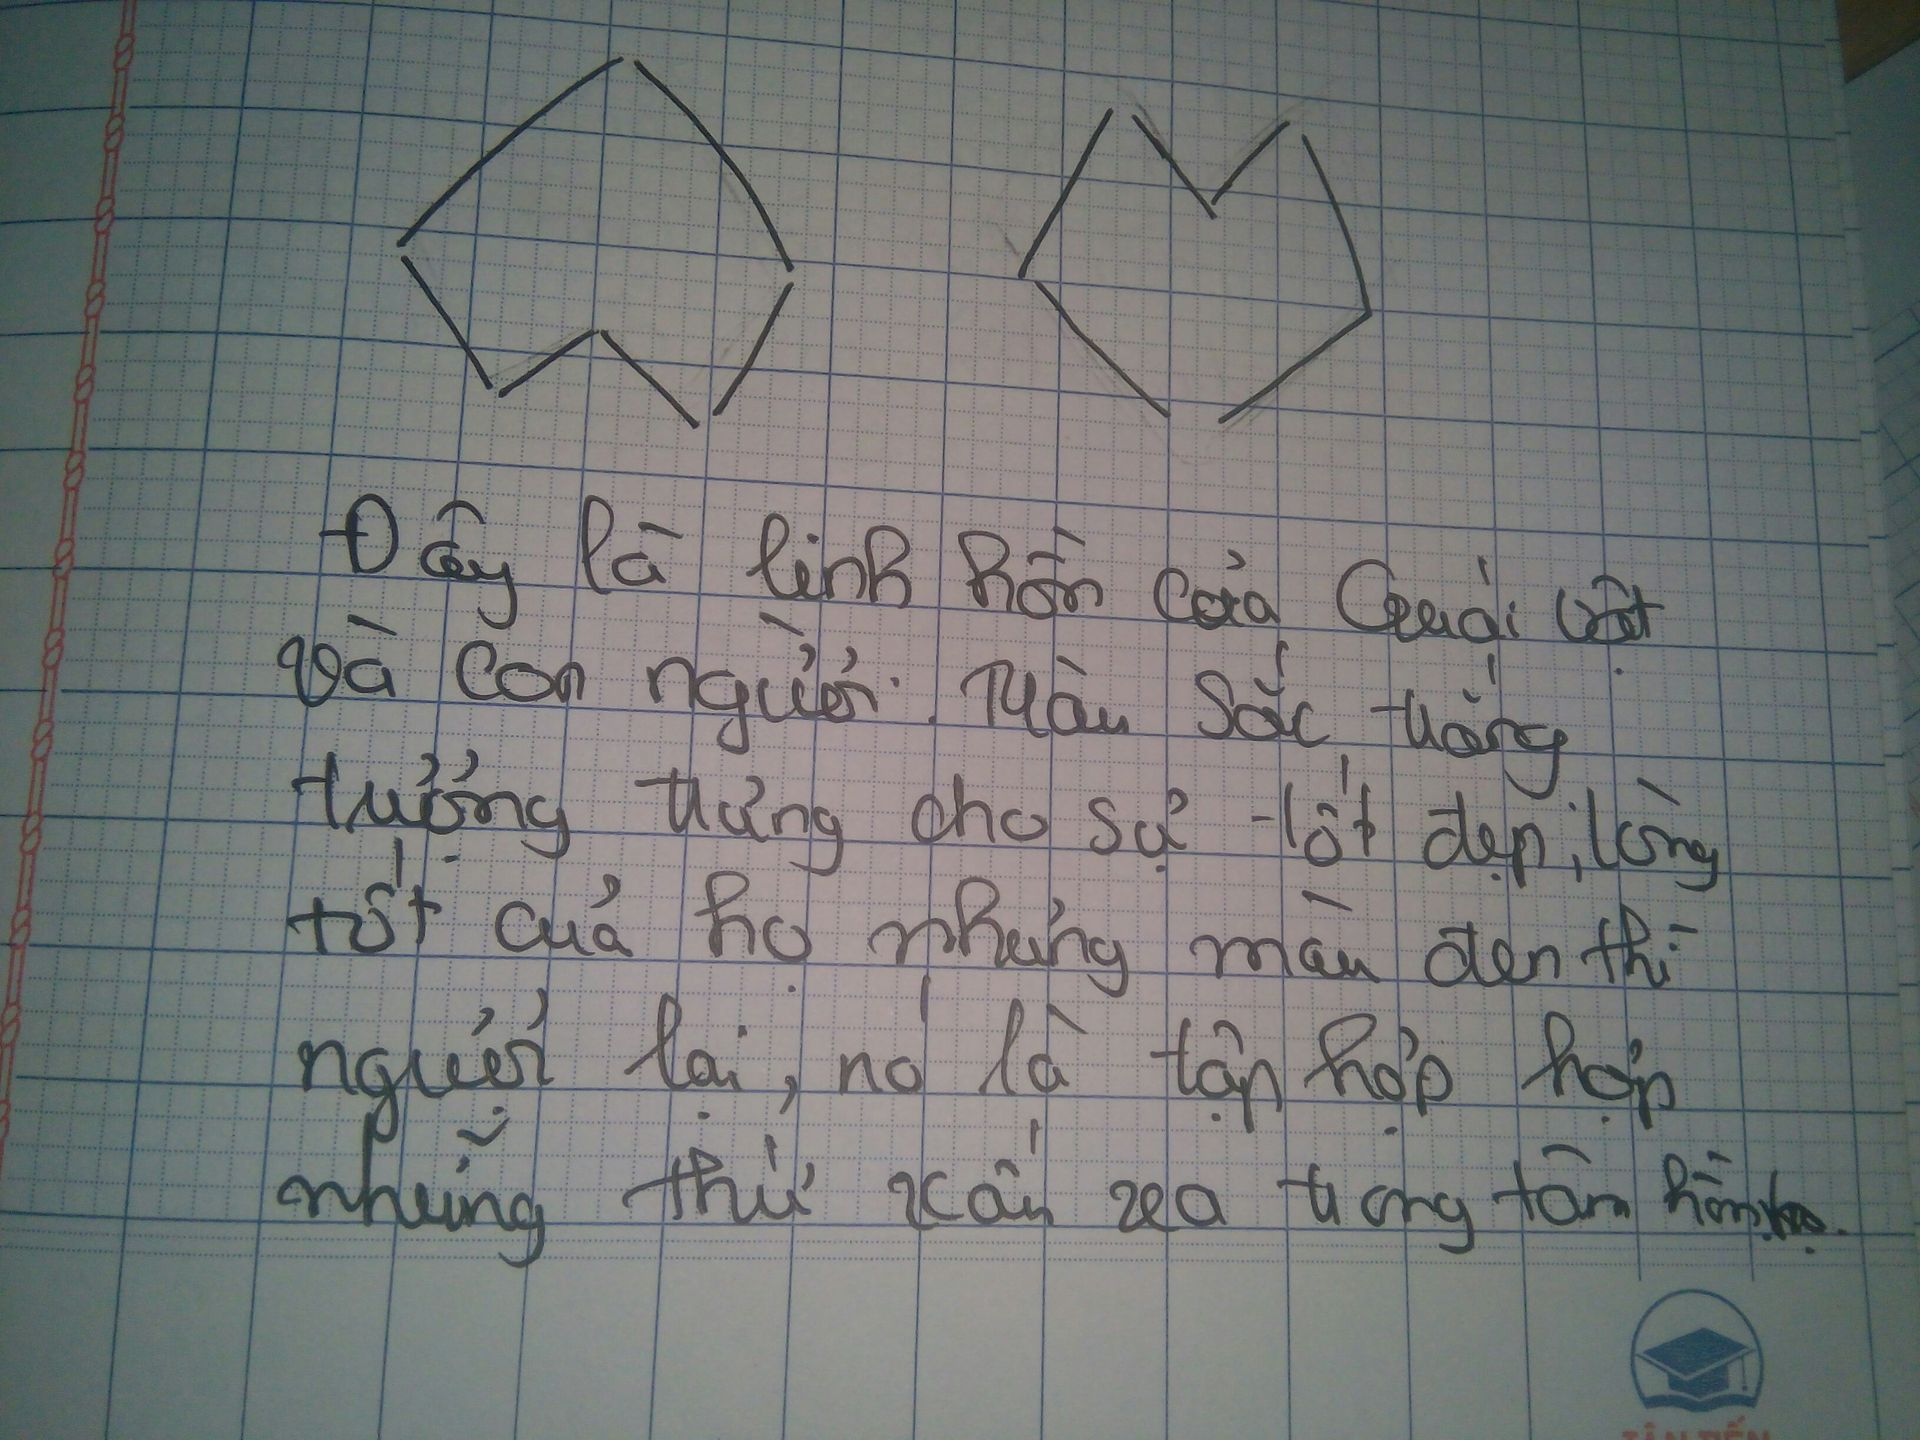 Đây là linh hồn của Quái vật
và con người. Màu sắc trắng
tượng trưng cho sự tốt đẹp, lòng
tốt của họ nhưng màu đen thì
ngược lại, nó là tập hợp hợp
những thứ xấu xa trong tâm hồn họ.
TÂN TIẾN